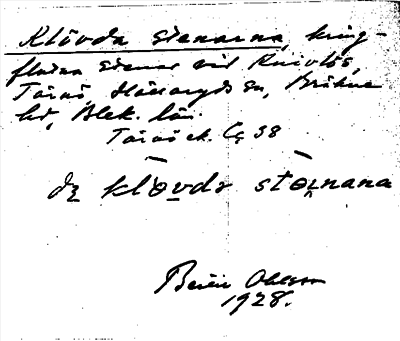 Klövda stenarna, kring-
flutna stenar vid Knivlös,
Tärnö, Hällaryds sn, Bräkne
hd, Blek. län.
Tärnö ek. Cg 38
dę klövda stęnana
Ohlsson
1928.